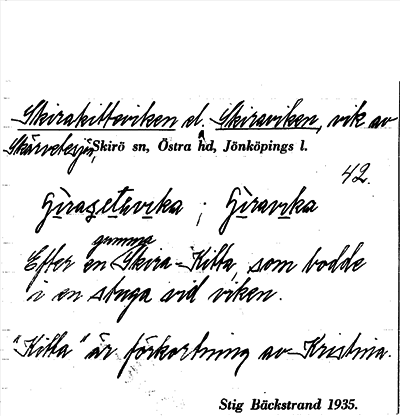 Skirakitteviken el. Skiraviken, vik av
Skärvetesjön, Skirö sn, Östra hd, Jönköpings l.
42.
; Giravika
gumma
Efter en Skira-Kitta, som bodde
i en stuga vid viken.
"Kitta" är förkortning av Kristina.
Stig Bäckstrand 1935.